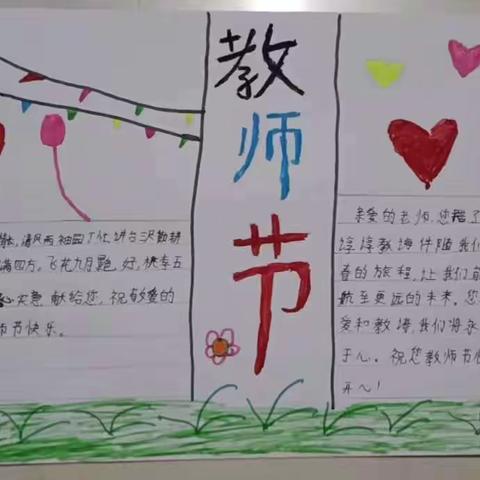 教师节
清风两袖园丁忙,讲台
满四方。飞花九月
献给您,祝敬爱的
师节快乐。
亲爱的老师,您
谆谆教诲伴随我们
春的旅程,让我们
航至更远的未来。您
爱和教诲,我们将永
于心。祝您教师节
开心!